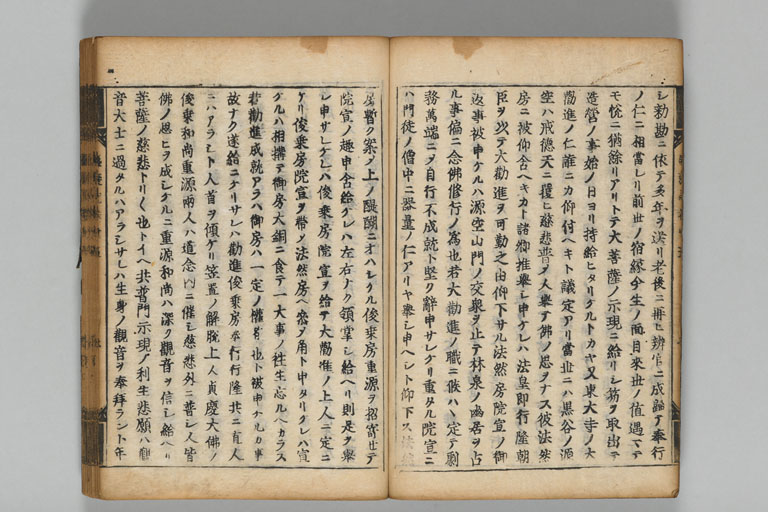 シ勅勘ニ依テ多年ヲ送リ老後ニ再ヒ辨官ニ成テ奉行
ノ仁ニ相當レリ前世ノ宿縁今生ノ面目来世ノ値遇マテ
モ悦ニ猶餘リアリトテ大菩薩ノ示現ニ給リシ笏ヲ取出テ
造營ノ事始ノ日ヨリ持給ヒタリケルトカヤ又東大寺ノ大
勸進ノ仁誰ニカ仰付ヘキト議定アリ當世ニハ黒谷ノ源
空ハ戒德天ニ覆ヒ慈悲普ク人擧テ佛ノ思ヲナス彼法然
房ニ被仰含ヘキカト諸卿推擧シ申ケレハ法皇即行隆朝
臣ヲ以テ大勸進ヲ可勤之由仰下サル法然房院宣ノ御
返事被申ケルハ源空山門ノ交衆ヲ止テ林泉ノ幽居ヲ占
ル事偏ニ念佛修行ノ爲也若大勸進ノ職ニ候ハヽ定テ劇
務萬端ニメ自行不成就ト堅ク辭申サレケリ重タル院宣ニ
ハ門徒ノ僧中ニ器量ノ仁アリヤ擧シ申ヘシト仰下ス法然
房暫ク案メ上ノ醍醐ニオハシケル俊乗房重源ヲ招寄セテ
院宣ノ趣申舎給ケレハ左右ナク領掌シ給ヘリ則是ヲ擧
シ申サレケレハ俊乗房院宣ヲ給テ大勸進ノ上人ニ定ニ
ケリ俊乗房院宣ヲ帶メ法然房ヘ参ヲ角ト申タリケレハ宣
ケルハ相構テ御房大銅ニ食テ一大事ノ往生忘ルヘカラス
若勸進成就アラハ御房ハ一定ノ權者也ト被申ケルカ事
故ナク遂給ニケリサレハ勸進俊乗房奉行行隆共ニ直人
ニハアラシト人首ヲ傾ケリ笠置ノ解脱上人貞慶大佛ノ
俊乗和尚重源兩人ハ道念内ニ催シ慈悲外ニ普シ人皆
佛ノ思ヒヲ成シケルニ重源和尚ハ深ク觀音ヲ信シ給ヘリ
菩薩ノ慈悲トリ〳〵也トイヘ共普門示現ノ利生悲願ハ觀
音大士ニ過タルハアラシサレハ生身ノ觀音ヲ奉拜ラント年